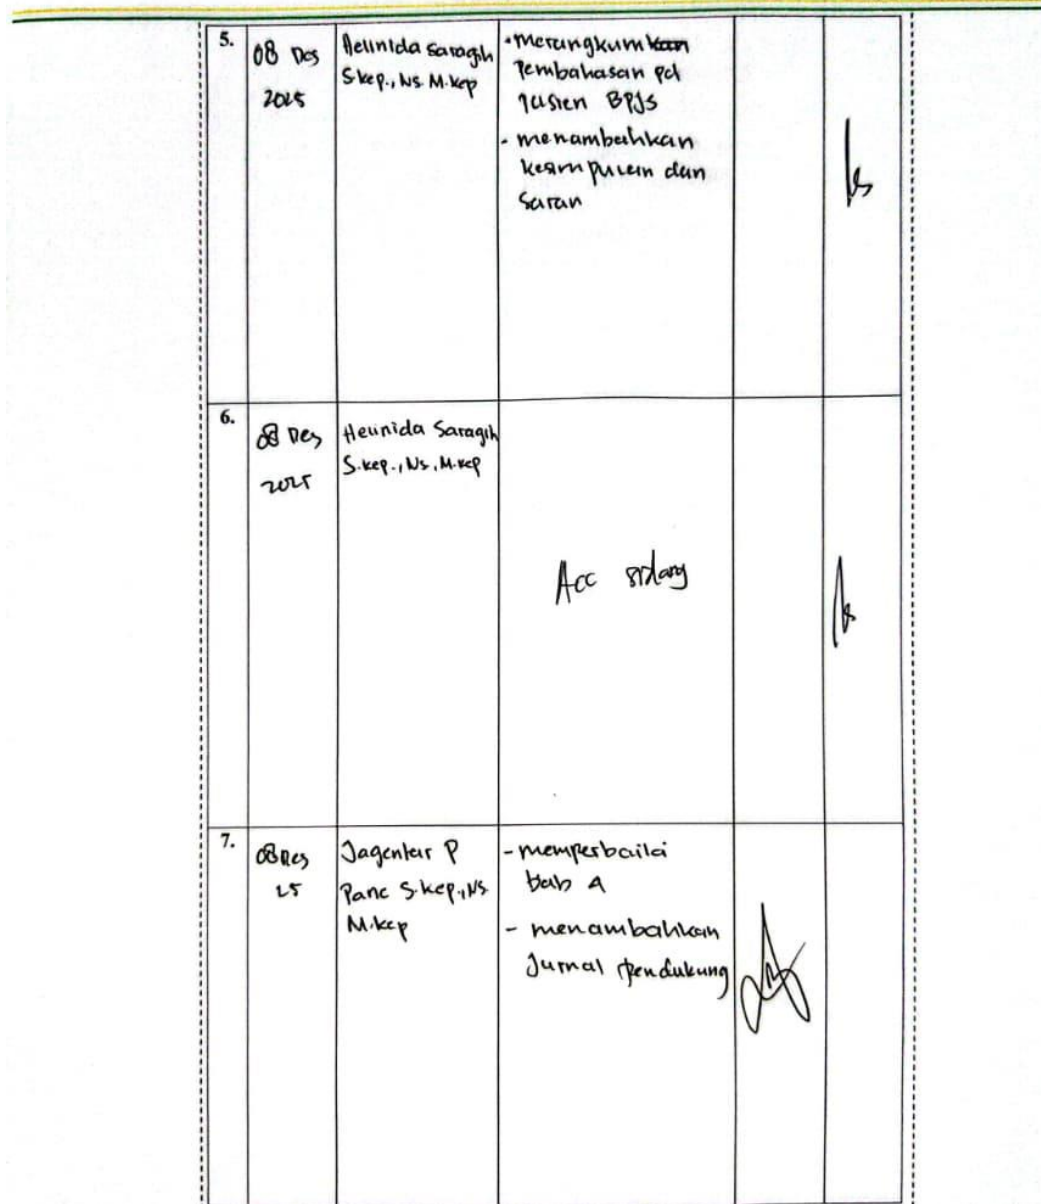 5.
08 Des
2025
Helinida Saragih
S.kep., Ns. M.kep
- merangkumkan
Pembahasan pd
pasien BPJS
- menambahkan
kesimpulan dan
saran
6.
08 Des
2025
Helinida Saragih
S.kep., Ns. M.kep
Acc sidang
7.
08 Des
25
Jagentar P
Pane S.kep., Ns
M.kep
- memperbaiki
bab 4
- menambahkan
Jurnal pendukung